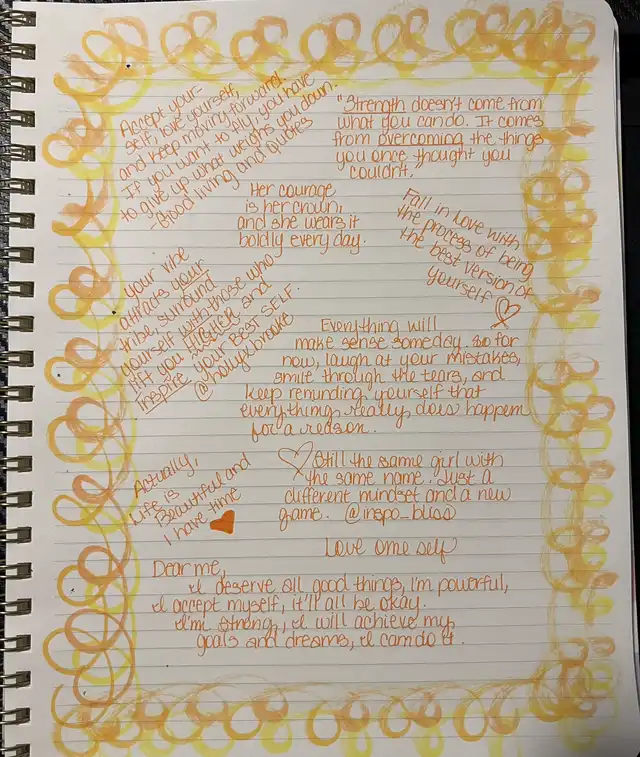 Accept your-
self, love yourself,
and keep moving forward.
If you want to fly, you have
to give up what weighs you down.
-Good living and Quotes
"Strength doesn't come from
what you can do. It comes
from overcoming the things
you once thought you
couldn't."
Her courage
is her crown,
and she wears it
boldly every day.
Fall in love with
the process of being
the best version of
yourself
Your vibe
attracts your
tribe, surround
yourself with those who
lift you HIGHER and
inspire your BEST SELF.
@hollykbrooke
Everything will
make sense someday. So for
now, laugh at your mistakes,
smile through the tears, and
keep reminding yourself that
everything, really, does happen
for a reason.
Actually,
Life is
Beautiful and
I have time
Still the same girl with
the same name. Just a
different mindset and a new
game. @inspo_bliss
Love ome self
Dear me,
I deserve all good things, I'm powerful,
I accept myself, it'll all be okay.
I'm strong, I will achieve my
goals and dreams, I can do it.